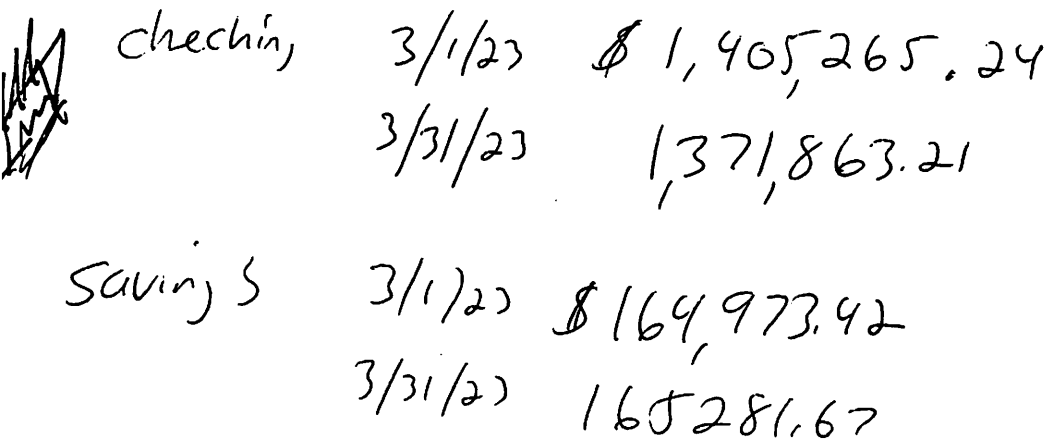 checking 3/1/23 $ 1,405,265.24
3/31/23 1,371,863.21
Savings 3/1/23 $164,973.42
3/31/23 165281.67